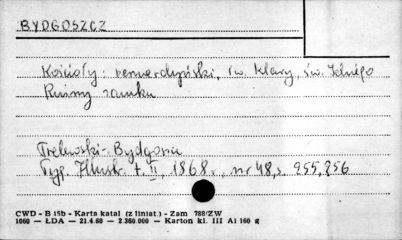 BYDGOSZCZ
Kościoły: bernardyński, św. Klary, św. Idziego
Ruiny zamku
Bydgoszcz
Tyg. Illustr. t. II, 1868, nr 48, s. 255, 256
CWD - B 15b - Karta katal (z liniat.) - Zam 788/ZW
1060 — ŁDA — 21.4.60 — 2.360.000 — Karton kl. III A1 160 g